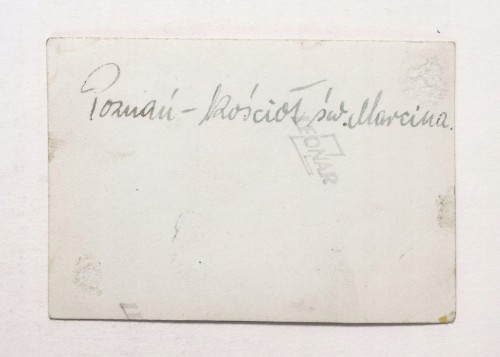 Poznań - Kościół św. Marcina.
LEONAR